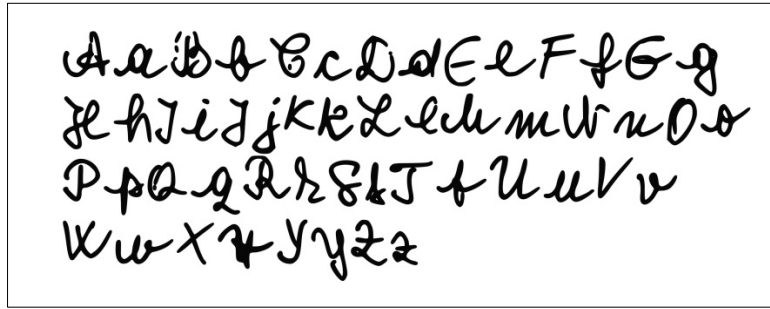 AaBbCcDdEeFfGg
HhIiJjKkLlMmNnOo
PpQqRrSsTtUuVv
WwXxYyZz